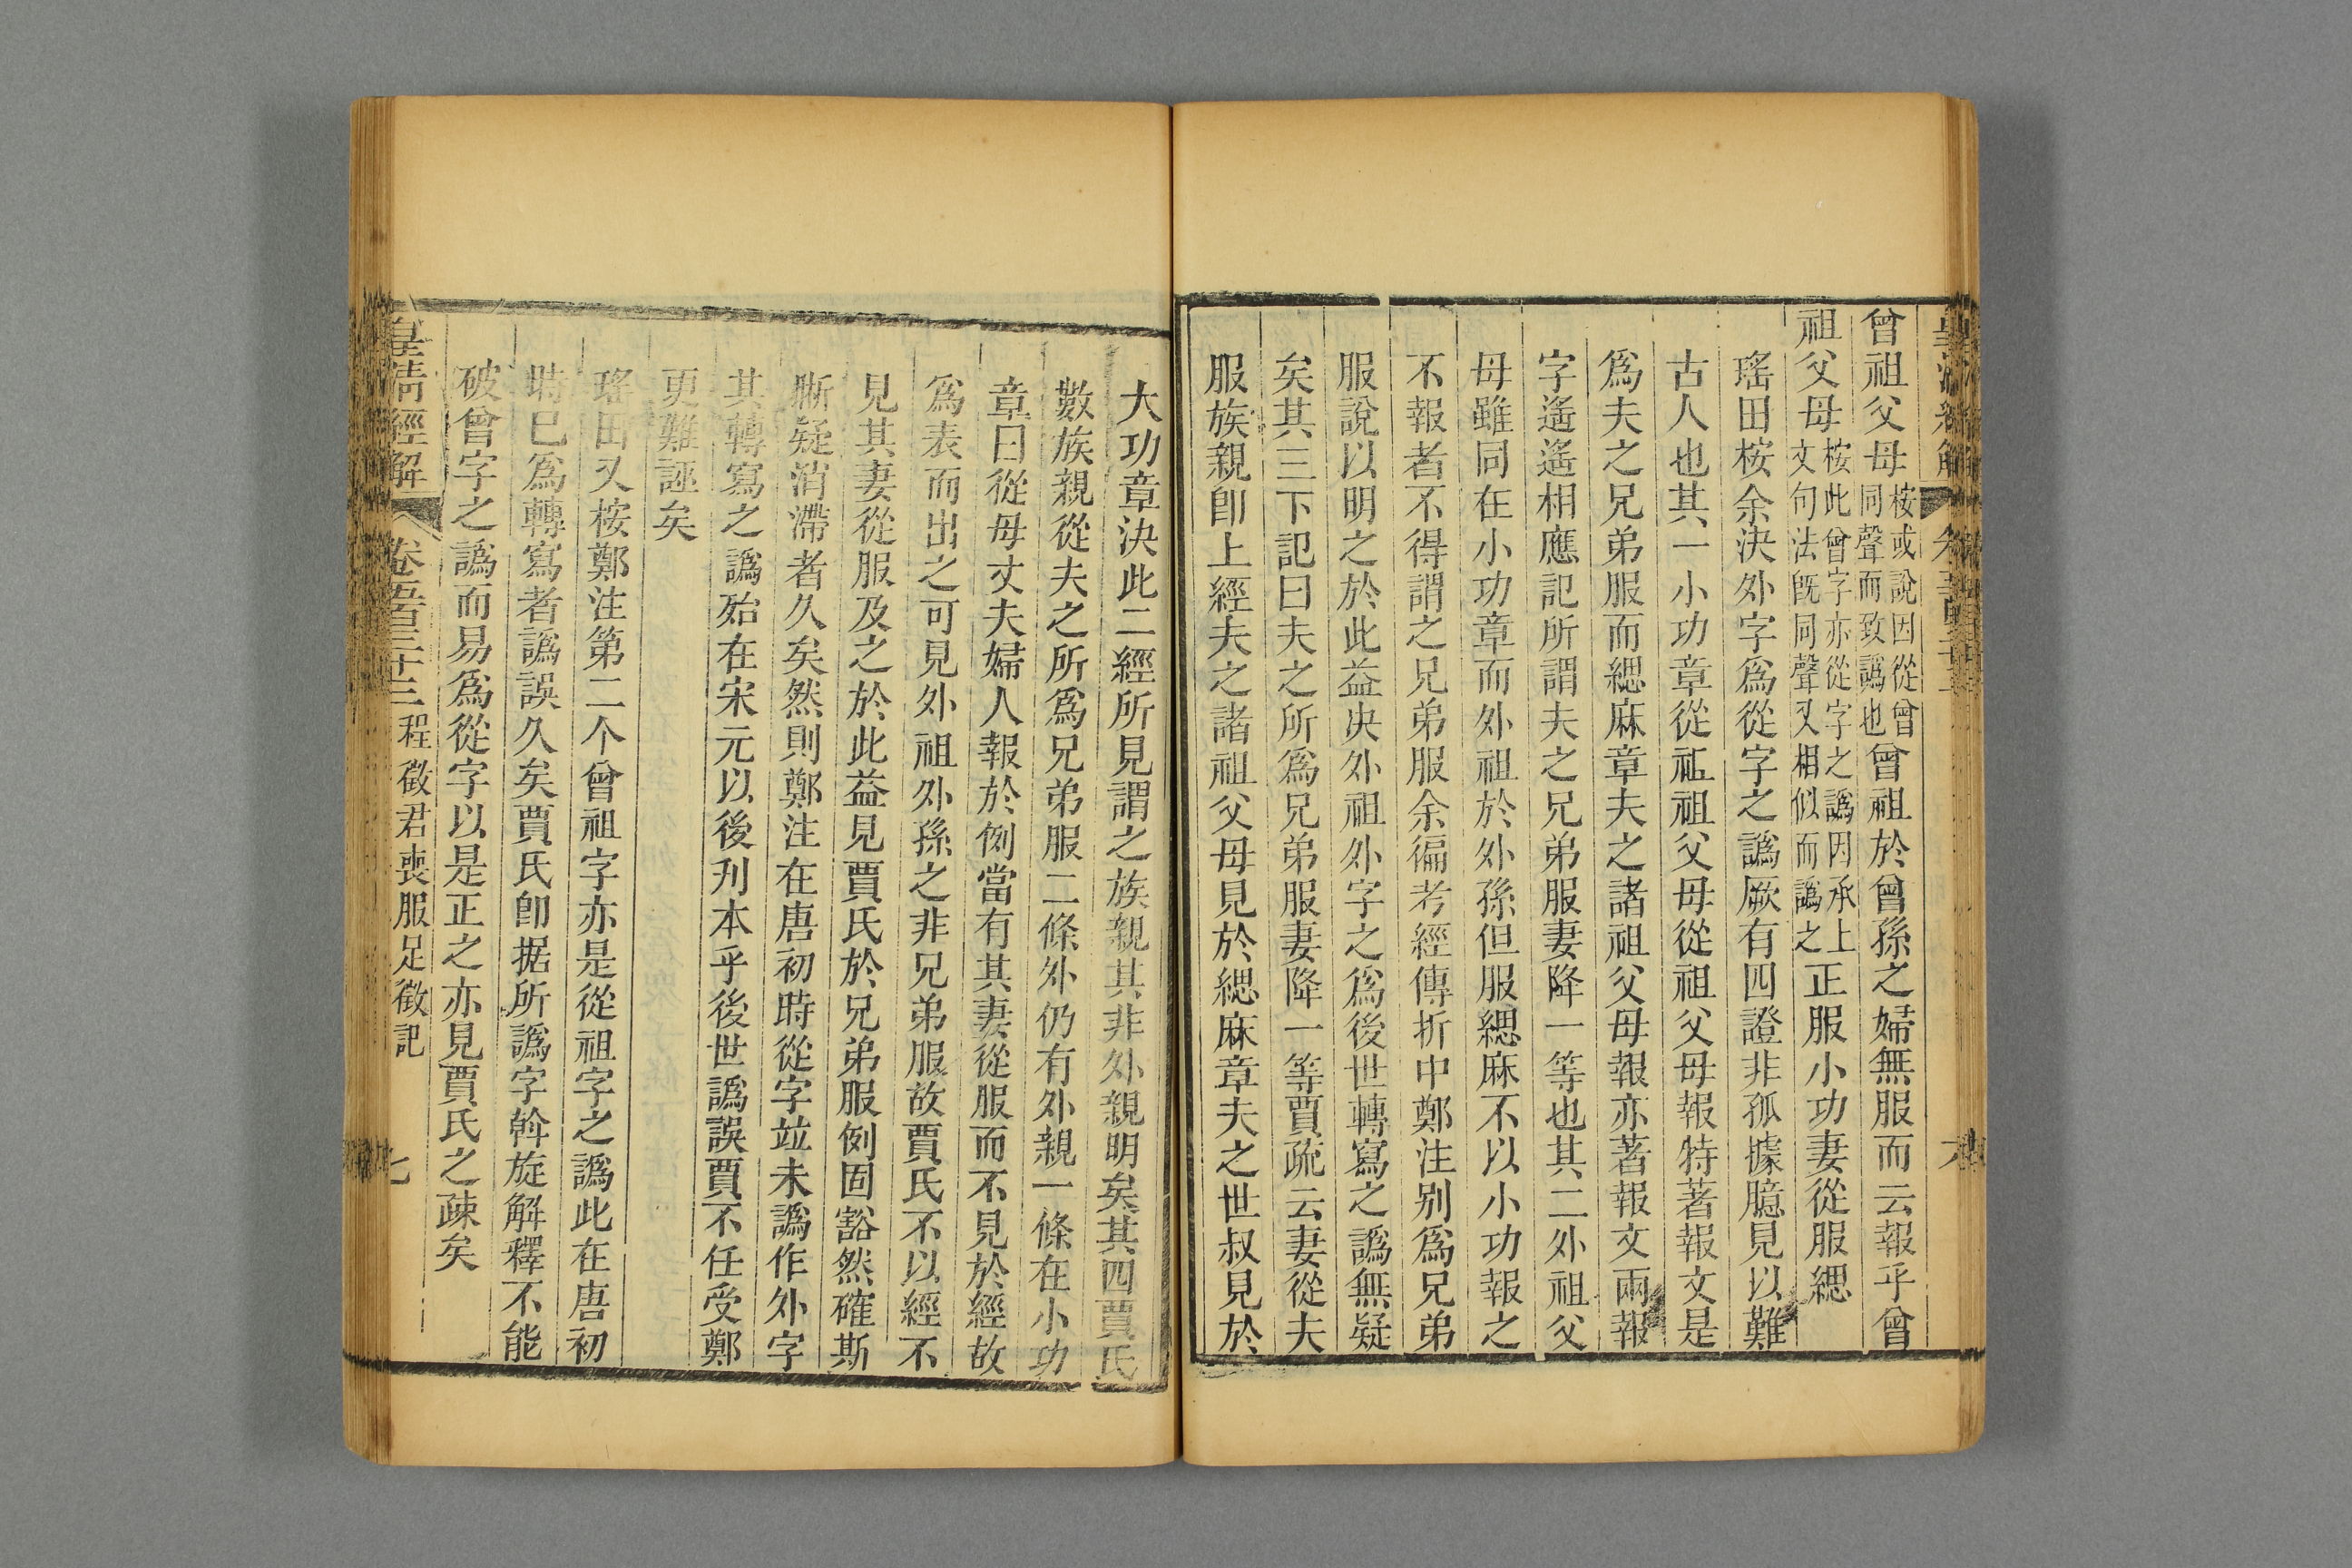 曾祖父母桉或說因從曾同聲而致譌也曾祖於曾孫之婦無服而云報乎曾
祖父母桉此曾字亦從字之譌因承上文句法旣同聲又相似而譌之正服小功妻從服緦
瑤田桉余決外字爲從字之譌厥有四證非孤據臆見以難
古人也其一小功章從祖祖父母從祖父母報特著報文是
爲夫之兄弟服而緦麻章夫之諸祖父母報亦著報文兩報
字遙遙相應記所謂夫之兄弟服妻降一等也其二外祖父
母雖同在小功章而外祖於外孫但服緦麻不以小功報之
不報者不得謂之兄弟服余徧考經傳折中鄭注别爲兄弟
服說以明之於此益决外祖外字之爲後世轉寫之譌無疑
矣其三下記曰夫之所爲兄弟服妻降一等賈疏云妻從夫
服族親卽上經夫之諸祖父母見於緦麻章夫之世叔見於
大功章決此二經所見謂之族親其非外親明矣其四賈氏
數族親從夫之所爲兄弟服二條外仍有外親一條在小功
章曰從母丈夫婦人報於例當有其妻從服而不見於經故
爲表而出之可見外祖外孫之非兄弟服故賈氏不以經不
見其妻從服及之於此益見賈氏於兄弟服例固豁然確斯
晣疑消滯者久矣然則鄭注在唐初時從字竝未譌作外字
其轉寫之譌殆在宋元以後刋本乎後世譌誤賈不任受鄭
更難誣矣
瑤田又桉鄭注第二个曾祖字亦是從祖字之譌此在唐初
時已爲轉寫者譌誤久矣賈氏卽据所譌字斡旋解釋不能
破曾字之譌而易爲從字以是正之亦見賈氏之疎矣
皇淸經解 卷五百三十三 程徵君喪服足徵記 七